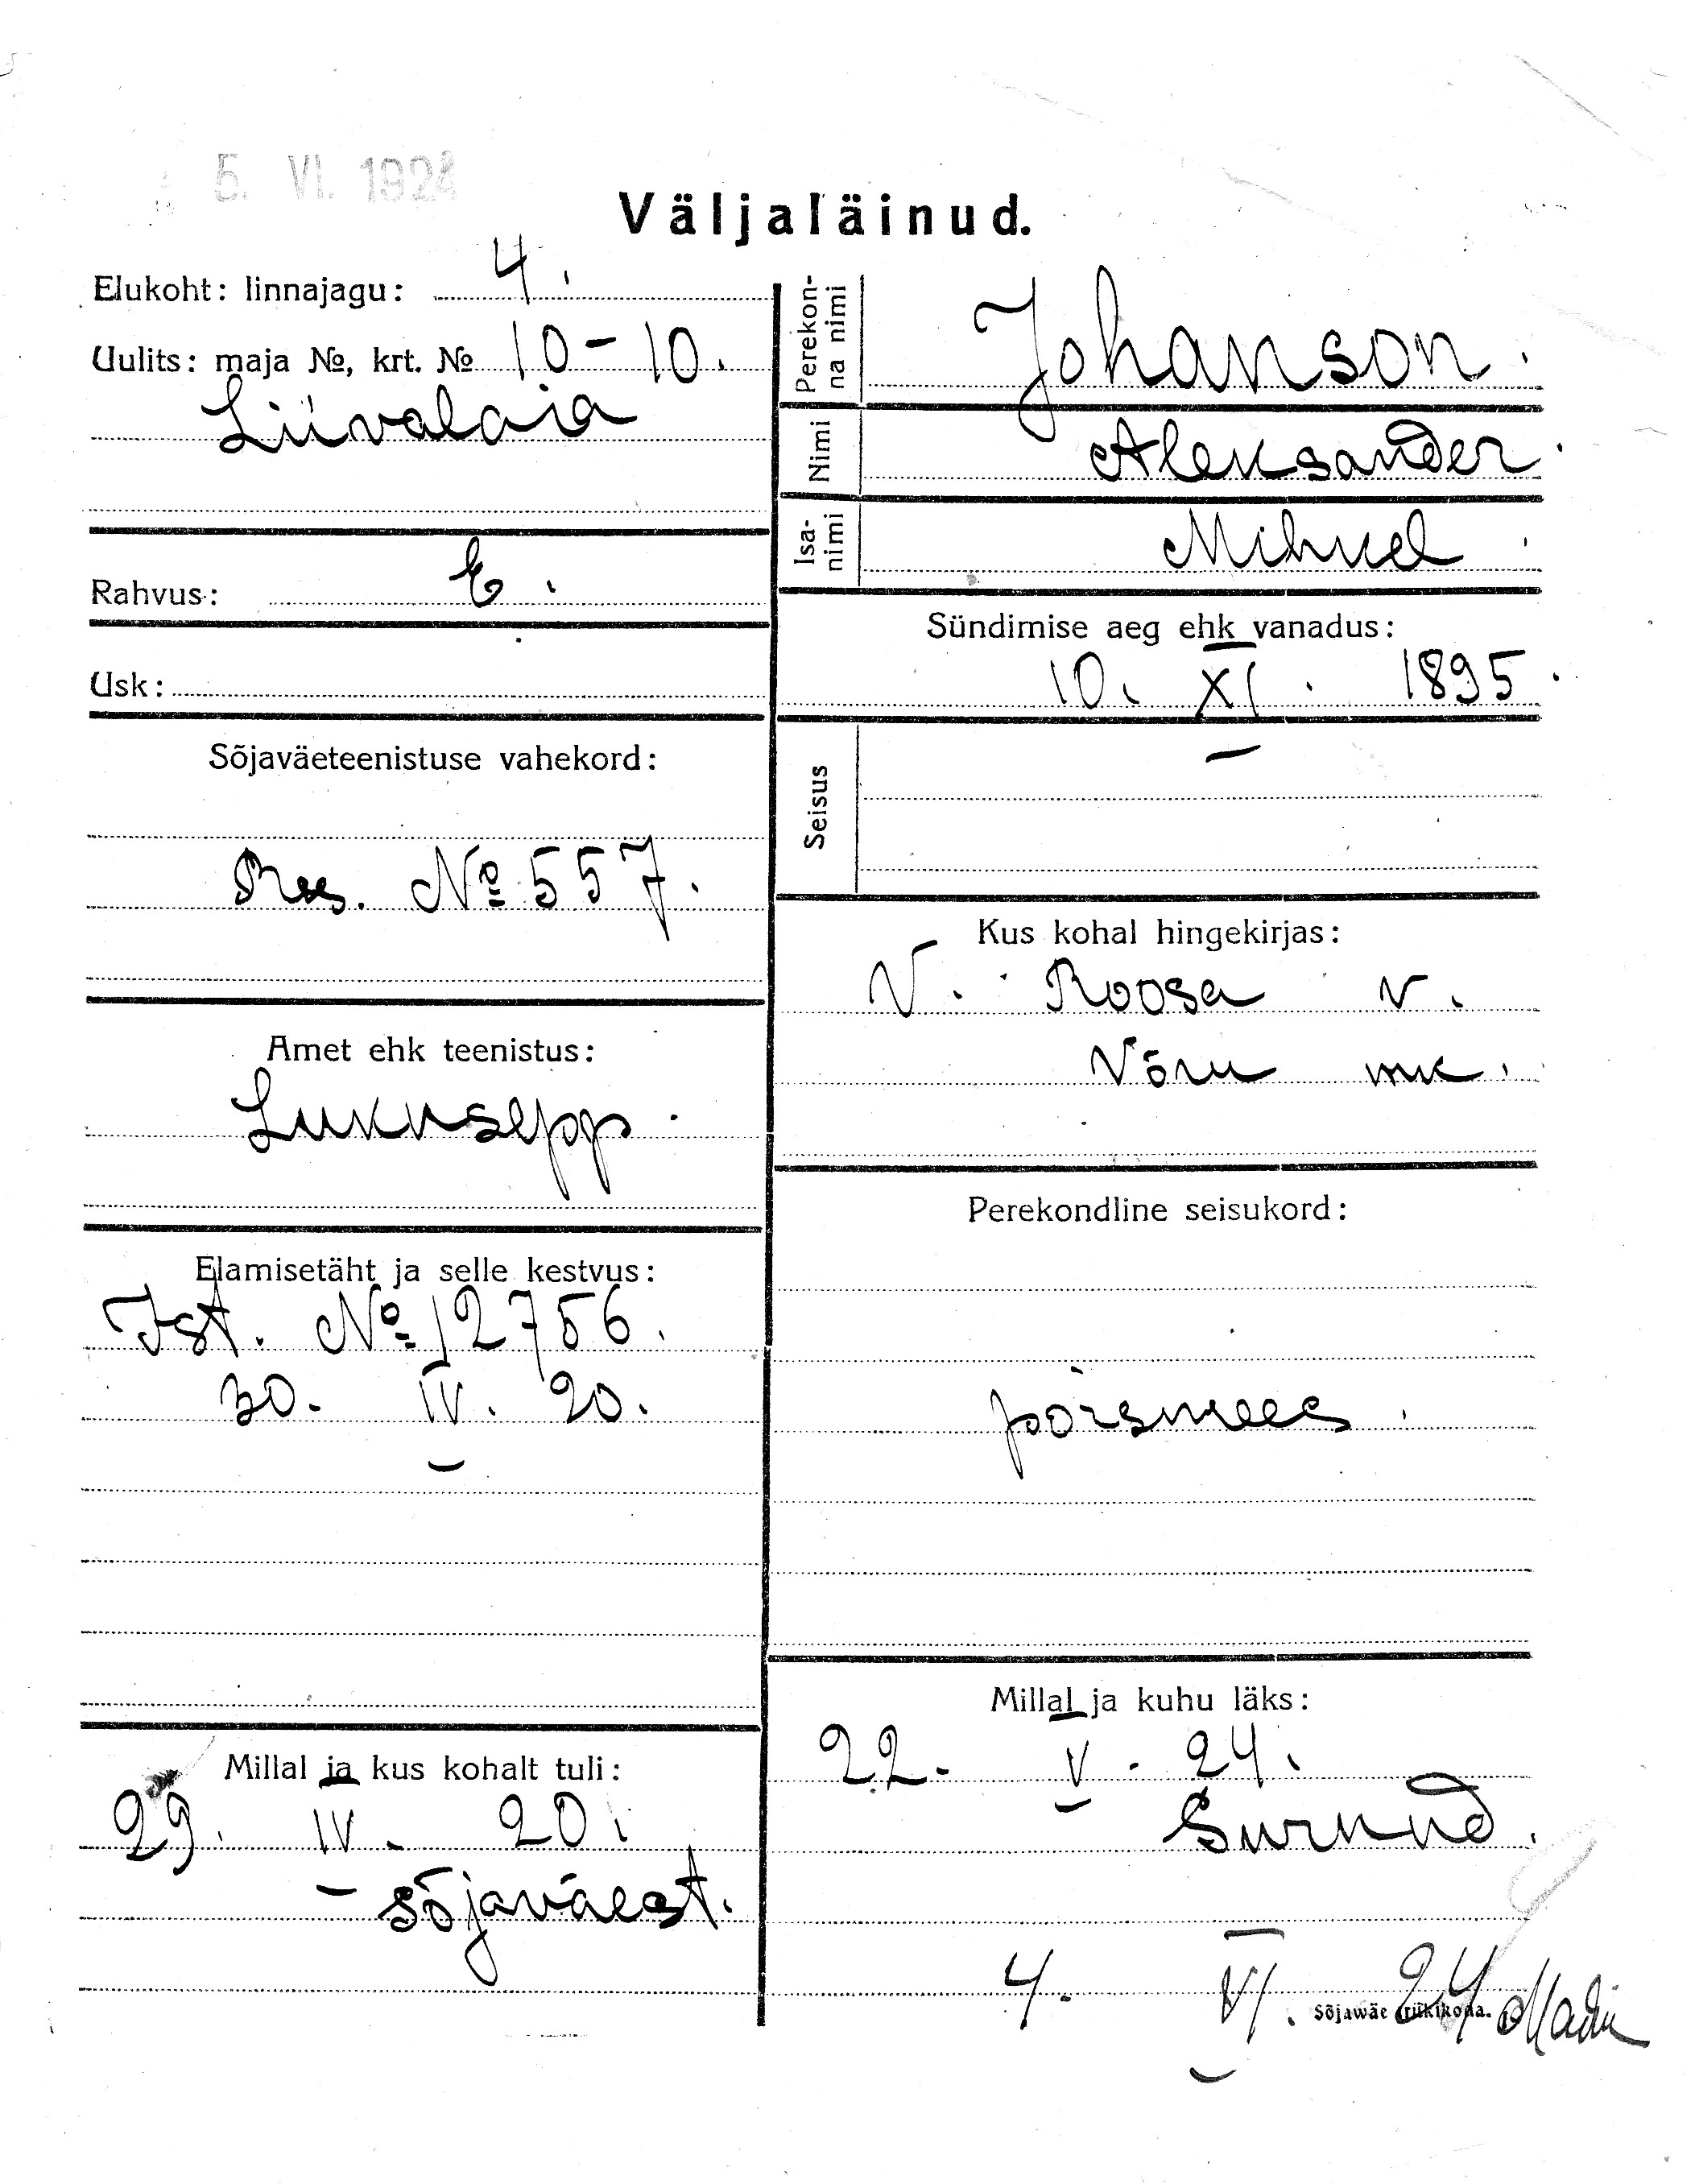 5. VI. 1924
Väljaläinud.
Elukoht: linnajagu: 4.
Uulits: maja №, krt. № 10-10.
Liivalaia
Rahvus: E.
Usk:
Sõjaväeteenistuse vahekord:
Res. № 557.
Amet ehk teenistus:
Lukusepp.
Elamisetäht ja selle kestvus:
Ist. № 12756.
30. IV. 20.
Millal ja kus kohalt tuli:
29. IV. 20.
sõjaväest.
Perekonna nimi
Johanson.
Nimi
Aleksander.
Isanimi
Mihkel
Sündimise aeg ehk vanadus:
10. XI. 1895.
Seisus
Kus kohal hingekirjas:
V. Roosa v.
Võru mk.
Perekondline seisukord:
poismees.
Millal ja kuhu läks:
22. V. 24.
Surnud.
4. VI. 24
Sõjawäe trükikoda.